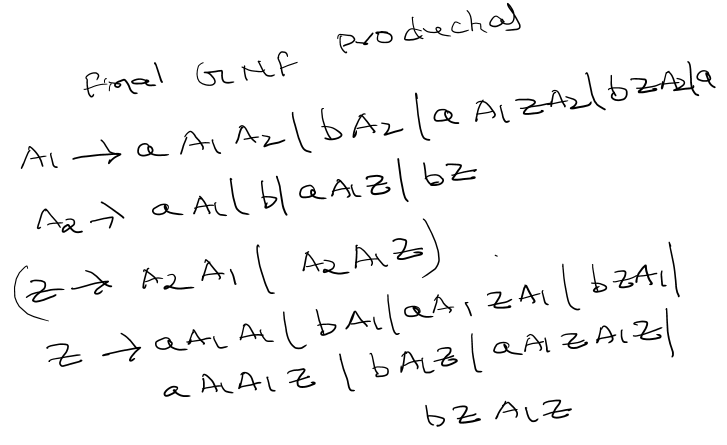 Final GNF productions
A₁ → a A₁ A₂ | b A₂ | a A₁ Z A₂ | b Z A₂ | a
A₂ → a A₁ | b | a A₁ Z | b Z
(Z → A₂ A₁ | A₂ A₁ Z)
Z → a A₁ A₁ | b A₁ | a A₁ Z A₁ | b Z A₁ |
a A₁ A₁ Z | b A₁ Z | a A₁ Z A₁ Z |
b Z A₁ Z